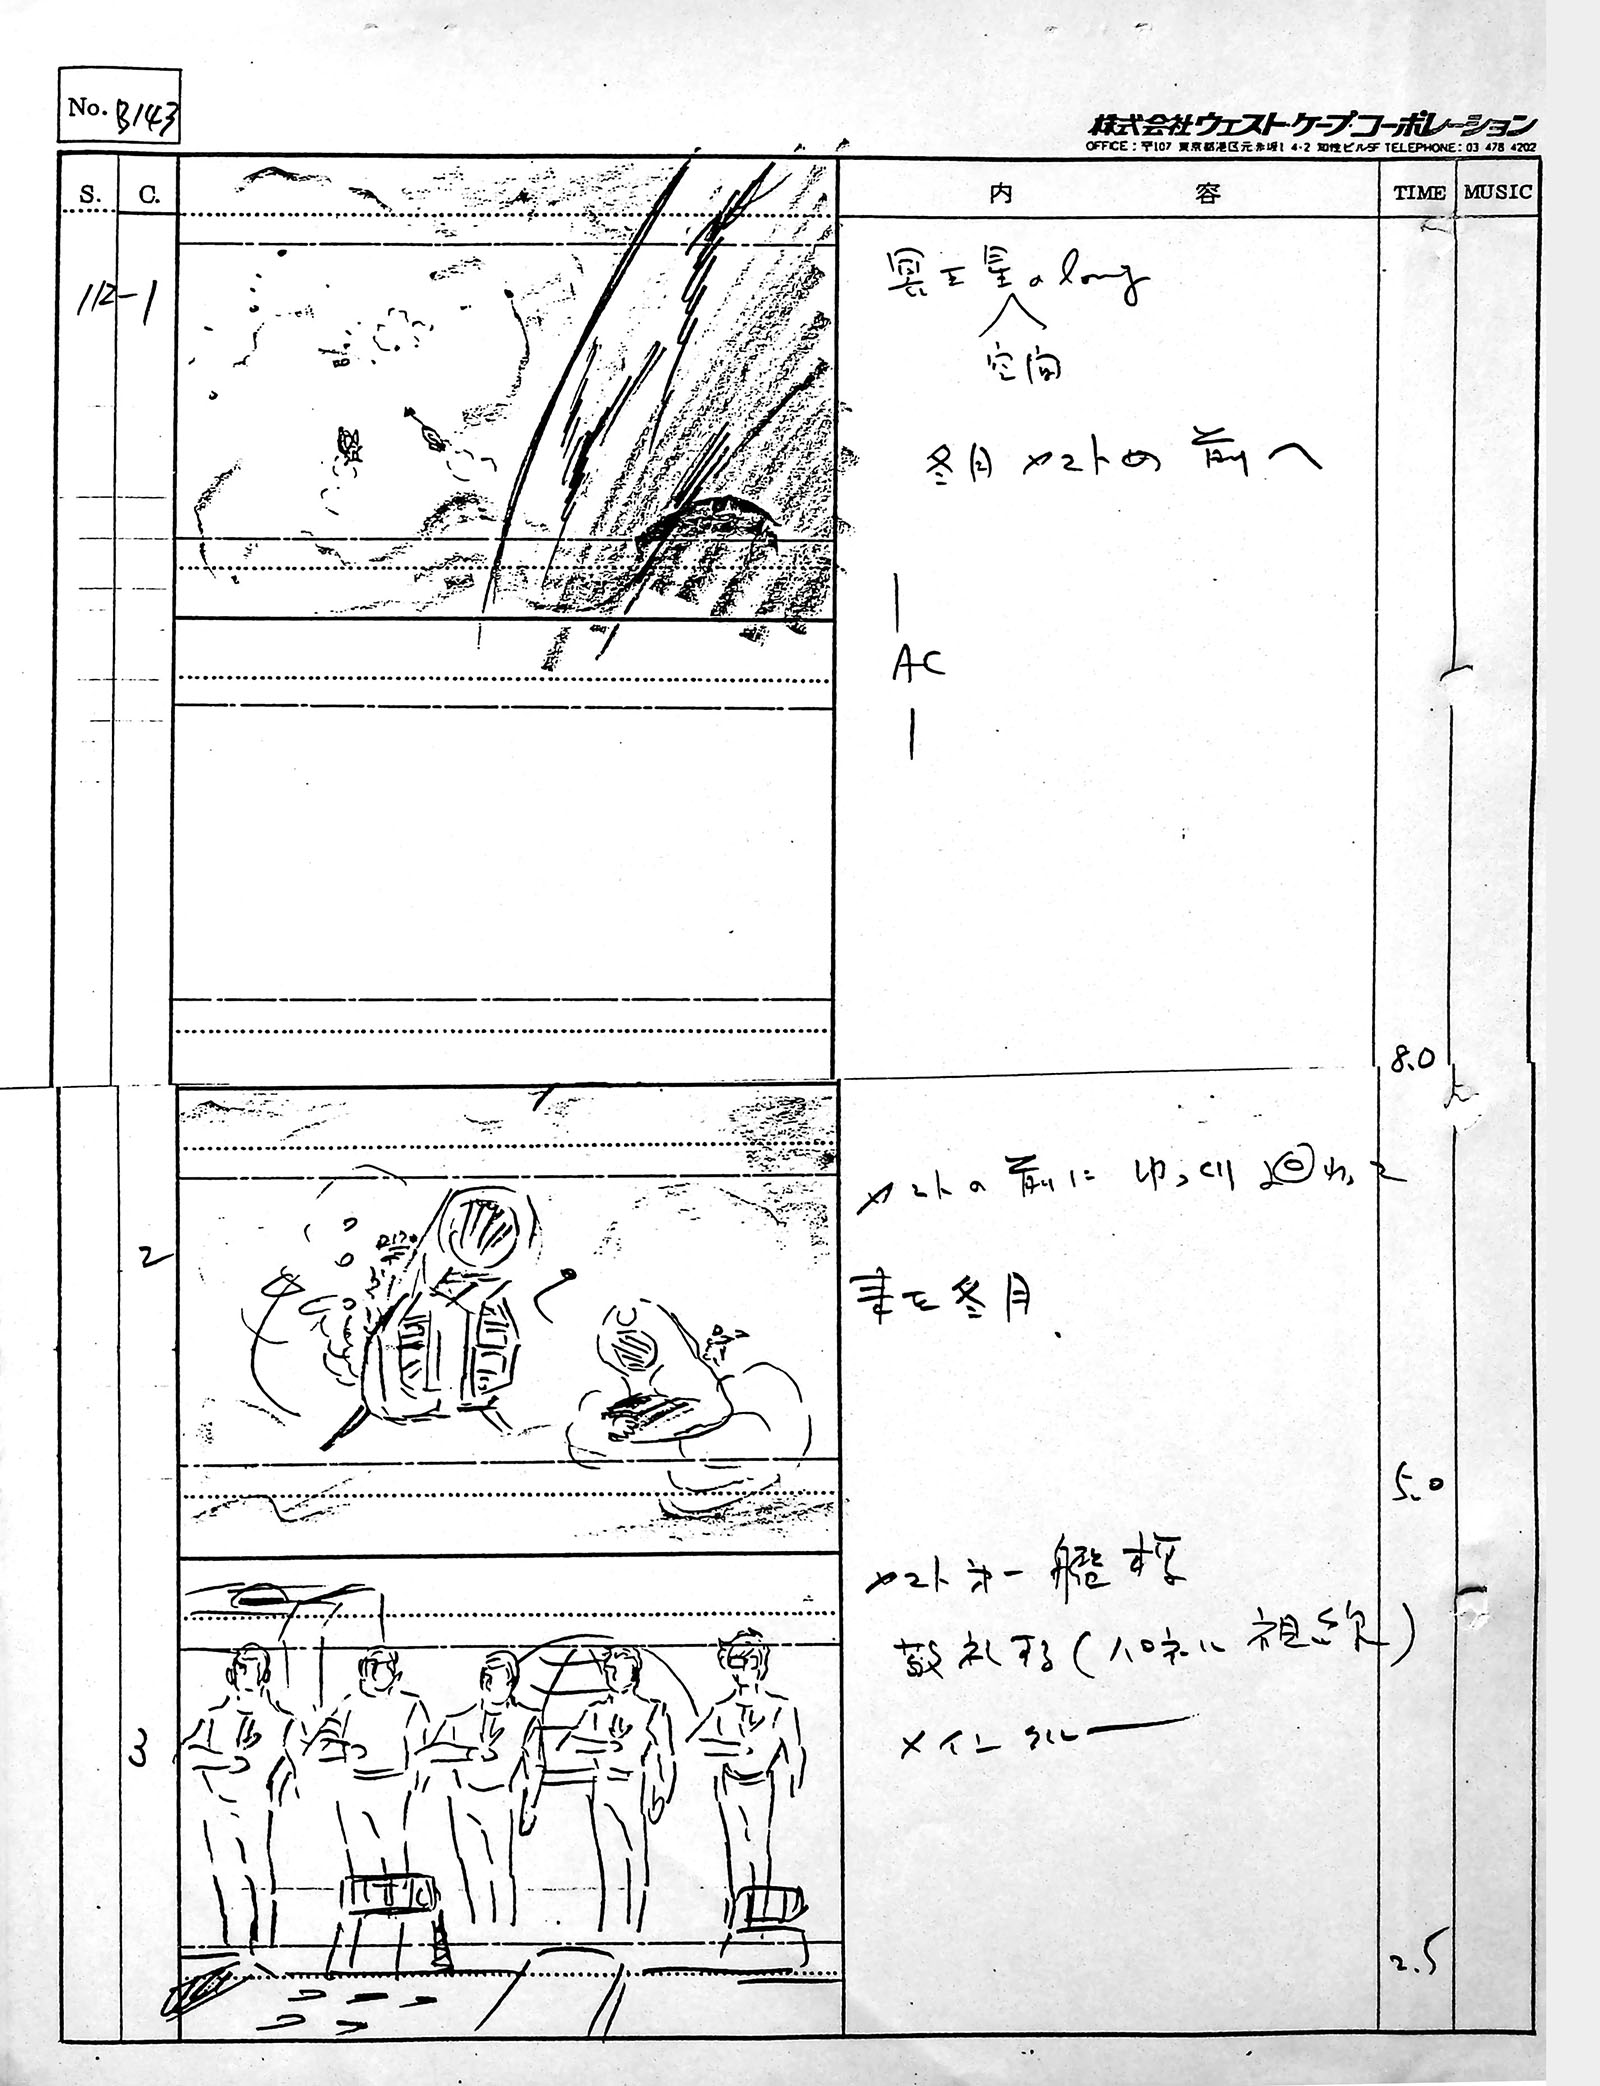 No. B143
株式会社ウェスト・ケープ・コーポレーション
OFFICE：〒107 東京都港区元赤坂1 4-2 知性ビル5F TELEPHONE：03 478 4202
S. C. 内 容 TIME MUSIC
112-1
冥王星のlong
空間
冬月 ヤマトの前へ
AC
8.0
2
ヤマトの前に ゆっくり
冬月
5.0
3
ヤマト 第一艦橋
敬礼する(パネルに視線)
メインクルー
2.5